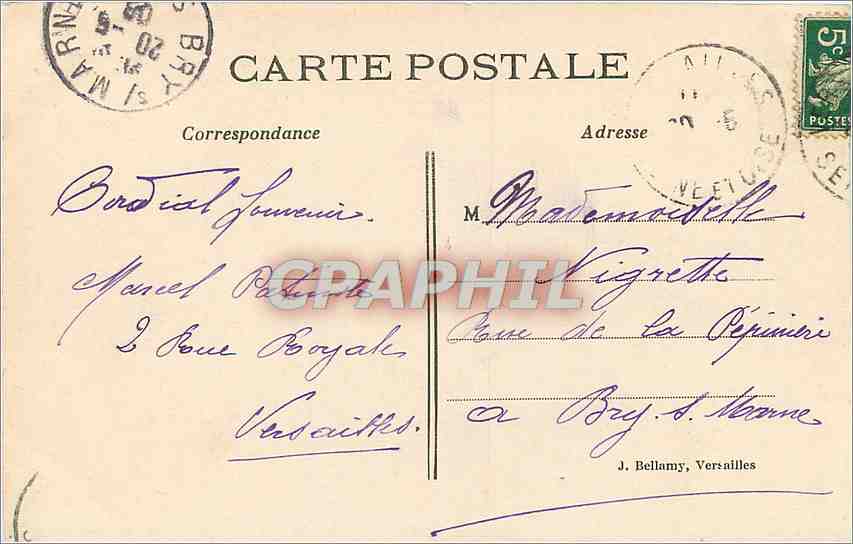 BRY S/ MARNE
20 -5
CARTE POSTALE
Correspondance
Adresse
5c
POSTES
SEINE ET OISE
Cordial Souvenir.
Marcel
2 Rue Royale
Versailles.
M Mademoiselle
Nigrette
Rue de la Pépinière
a Bry. s. Marne
J. Bellamy, Versailles
CPAPHIL